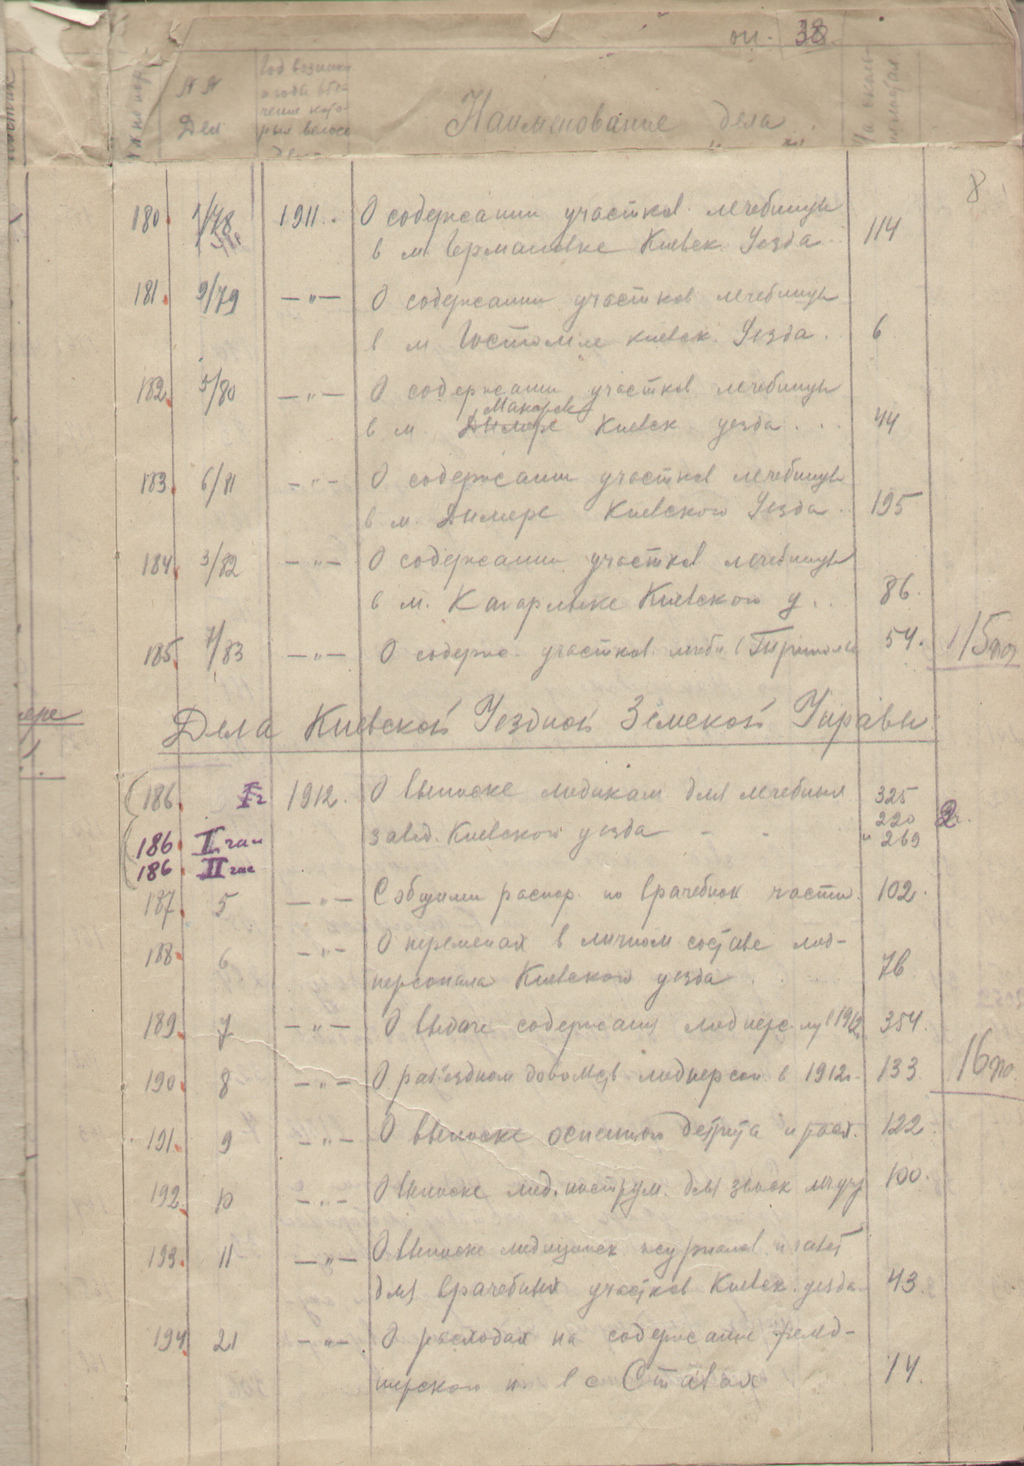 оп. 38
№№ Дел
Наименование дела
8
180. 1/78 1911. О содержании участков. лечебницы
в м. Германовке Киевск. Уезда. 114
181. 9/79 —"— О содержании участков лечебницы
в м Гостомле киевск. Уезда. 6
182. 5/80 —"— О содержании участков лечебницы
Макаров
в м. Дымере Киевск уезда . . . 44
183. 6/81 —"— О содержании участков лечебницы
в м. Дымере Киевского Уезда. 195
184. 3/82 —"— О содержании участков лечебницы
в м. Кагарлыке Киевского у. . . 86.
185. 7/83 —"— О содерж. участков. лечебн. в 54.
Дела Киевской Уездной Земской Управы
186. I г 1912. О выписке медикам. для лечебных 325
220
186 II час завед. Киевского уезда - - " 269
2.
186 III час
187. 5 —"— С общими распор. по врачебной части. 102.
188. 6 —"— О переменах в личном составе мед-
персонала Киевского уезда 76
189. 7 —"— О выдаче содержания медперс. в 1912 354.
190. 8 —"— О раз'ездном довольств. медперсон. в 1912 133
191. 9 —"— О выписке оспенного детрита и расх. 122
192. 10 —"— О выписке мед. инструм. для 100.
193. 11 —"— О выписке медицинск журналов и газет
для врачебных участков Киевск. уезда. 43.
194. 21 —"— О расходах на содержание фельд-
шерского п. в с Ставах 14.